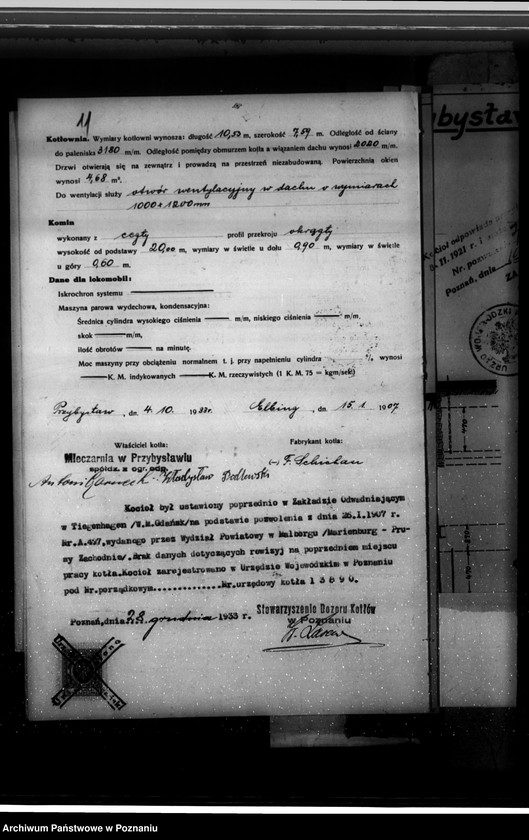 11
Kotłownia. Wymiary kotłowni wynosza: długość 10,53 m, szerokość 7,59 m. Odległość od ściany
do paleniska 3180 m/m. Odległość pomiędzy obmurzem kotła a wiązaniem dachu wynosi 2020 m/m.
Drzwi otwierają się na zewnątrz i prowadzą na przestrzeń niezabudowaną. Powierzchnia okien
wynosi 4,68 m².
Do wentylacji służy otwór wentylacyjny w dachu o wymiarach
1000 x 1200 mm
Komin
wykonany z cegły profil przekroju okrągły
wysokość od podstawy 20,00 m, wymiary w świetle u dołu 0,90 m, wymiary w świetle
u góry 0,60 m.
Dane dla lokomobil:
Iskrochron systemu
Maszyna parowa wydechowa, kondensacyjna:
Średnica cylindra wysokiego ciśnienia m/m, niskiego ciśnienia m/m,
skok m/m,
ilość obrotów na minutę.
Moc maszyny przy obciążeniu normalnem t. j. przy napełnieniu cylindra % wynosi
K. M. indykowanych K. M. rzeczywistych (1 K. M. 75 = kgm/sek)
Przybysław, dn. 4. 10. 1933 r. Elbing, dn. 15. 1. 1907
Właściciel kotła: Fabrykant kotła:
Mleczarnia w Przybysławiu
spółdz. z ogr. odp.
(-) F. Schichau
Antoni Władysław
Kocioł był ustawiony poprzednio w Zakładzie Odwadniającym
w Tiegenhagen /W.M.Gdańsk/na podstawie pozwolenia z dnia 26.I.1907 r.
Nr.A.497,wydanego przez Wydział Powiatowy w Malborgu /Marienburg - Pru-
sy Zachodnie/.Brak danych dotyczących rewizyj na poprzedniem miejscu
pracy kotła.Kocioł zarejestrowano w Urzędzie Wojewódzkim w Poznaniu
pod Nr.porządkowym..............Nr.urzędowy kotła 1 3 8 9 0.
Poznań,dnia 29. grudnia 1933 r.
Stowarzyszenie Dozoru Kotłów
w Poznaniu
Kocioł odpowiada
Nr.
Poznań, dnia
ZA
Archiwum Państwowe w Poznaniu